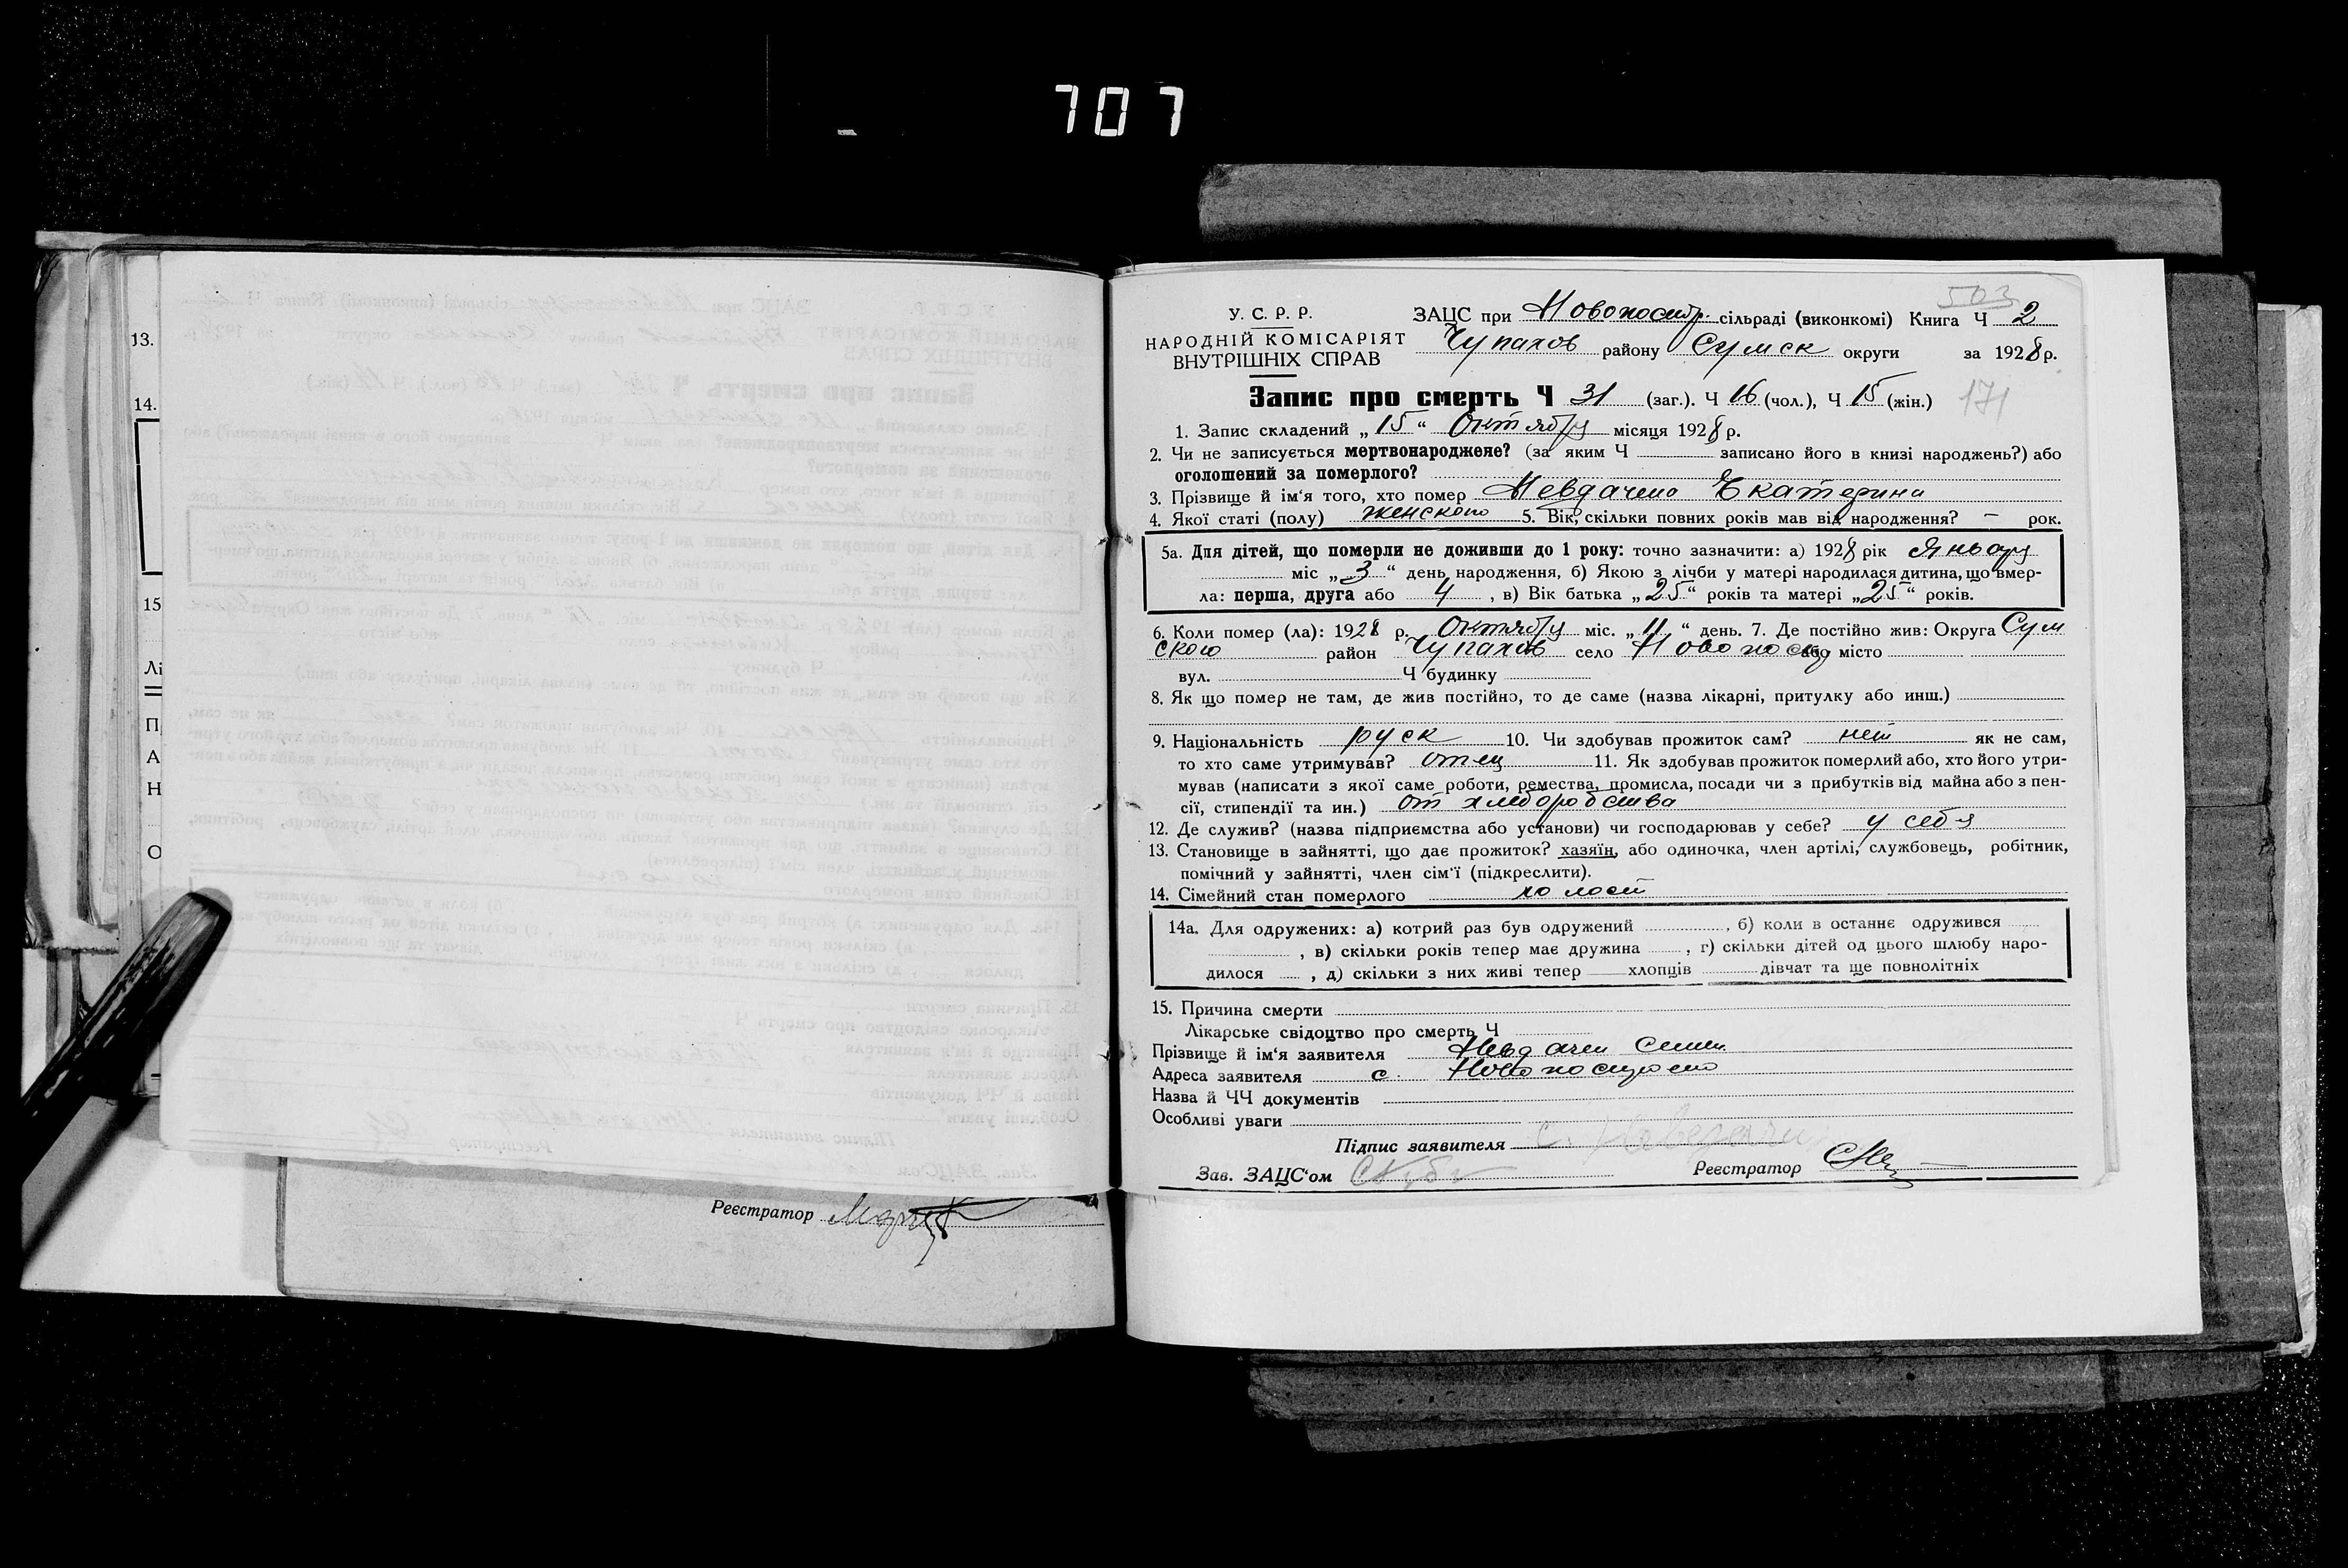 707
13.
14.
15
Лі
П
А
Н
О
Реєстратор
503
У. С. Р. Р.
НАРОДНІЙ КОМІСАРІЯТ
ВНУТРІШНІХ СПРАВ
ЗАЦС при сільраді (виконкомі) Книга Ч 2
Чупахов району Сумск округи за 1928 р.
Запис про смерть Ч 31 (заг.). Ч 16 (чол.), Ч 15 (жін.) 171
1. Запис складений „ 15 “ Октября місяця 1928 р.
2. Чи не записується мертвонароджене? (за яким Ч записано його в книзі народжень?) або
оголошений за померлого?
3. Прізвище й ім'я того, хто помер Екатерина
4. Якої статі (полу) женского 5. Вік, скільки повних років мав від народження? – рок.
5а. Для дітей, що померли не доживши до 1 року: точно зазначити: а) 1928 рік Января
міс „ 3 “ день народження, б) Якою з лічби у матері народилася дитина, що вмер-
ла: перша, друга або 4 , в) Вік батька „ 25 “ років та матері „ 25 “ років.
6. Коли помер (ла): 1928 р. Октября міс. „ 11 “ день. 7. Де постійно жив: Округа Сум
ского район Чупахов село або місто
вул. Ч будинку
8. Як що помер не там, де жив постійно, то де саме (назва лікарні, притулку або инш.)
9. Національність руск 10. Чи здобував прожиток сам? нет як не сам,
то хто саме утримував? отец 11. Як здобував прожиток померлий або, хто його утри-
мував (написати з якої саме роботи, ремества, промисла, посади чи з прибутків від майна або з пен-
сії, стипендії та ин.) от хлеборобства
12. Де служив? (назва підприємства або установи) чи господарював у себе? у себя
13. Становище в зайнятті, що дає прожиток? хазяїн, або одиночка, член артілі, службовець, робітник,
помічний у зайнятті, член сім'ї (підкреслити).
14. Сімейний стан померлого холост
14а. Для одружених: а) котрий раз був одружений , б) коли в останнє одружився
, в) скільки років тепер має дружина , г) скільки дітей од цього шлюбу наро-
дилося , д) скільки з них живі тепер хлопців дівчат та ще повнолітніх
15. Причина смерти
Лікарське свідоцтво про смерть Ч
Прізвище й ім'я заявителя
Адреса заявителя с.
Назва й ЧЧ документів
Особливі уваги
Підпис заявителя С.
Зав. ЗАЦС'ом Реєстратор